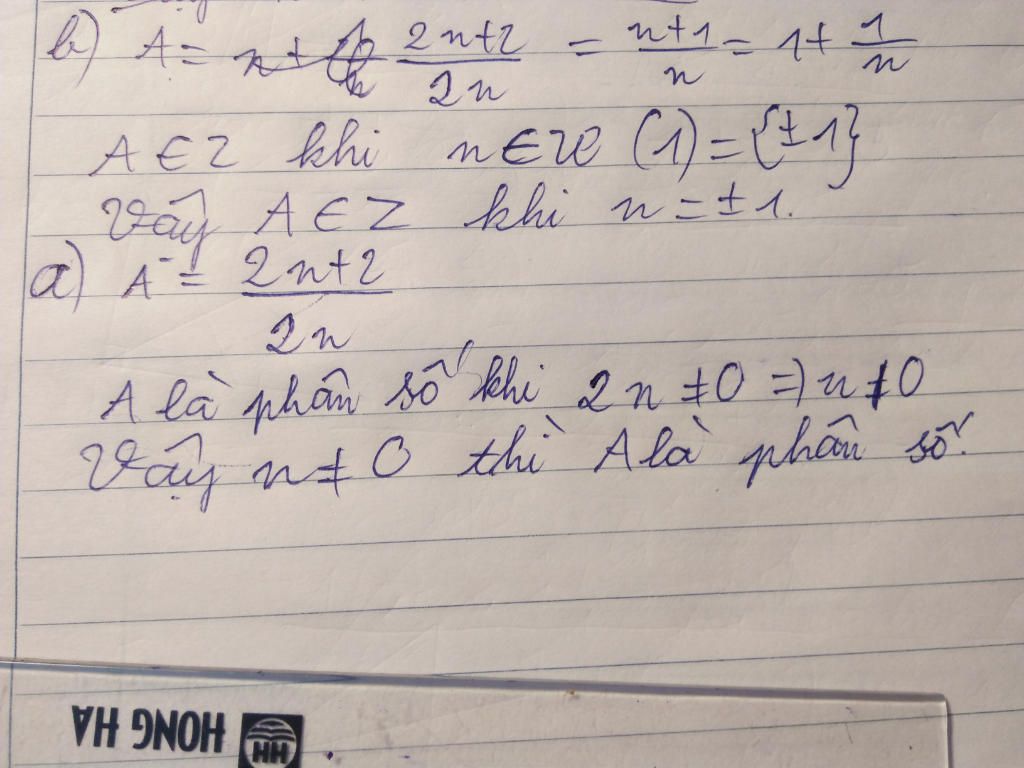 b) A = 2n+2/2n = n+1/n = 1+ 1/n
A ∈ Z khi n ∈ Ư (1) = {±1}
Vậy A ∈ Z khi n = ±1.
a) A = 2n+2/2n
A là phân số khi 2n ≠ 0 => n ≠ 0
Vậy n ≠ 0 thì A là phân số.
HONG HA
HH